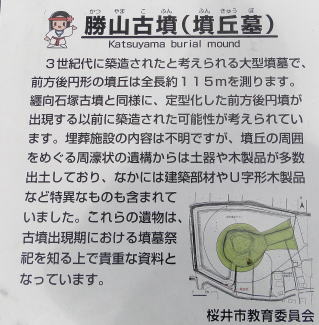 かつ やま こ ふん ふん きゅう ぼ
勝山古墳(墳丘墓)
Katsuyama burial mound
３世紀代に築造されたと考えられる大型墳墓で、
前方後円形の墳丘は全長約１１５ｍを測ります。
纒向石塚古墳と同様に、定型化した前方後円墳が
出現する以前に築造された可能性が考えられてい
ます。埋葬施設の内容は不明ですが、墳丘の周囲
をめぐる周濠状の遺構からは土器や木製品が多数
出土しており、なかには建築部材やＵ字形木製品
など特異なものも含まれて
いました。これらの遺物は、
古墳出現期における墳墓祭
祀を知る上で貴重な資料と
なっています。
桜井市教育委員会